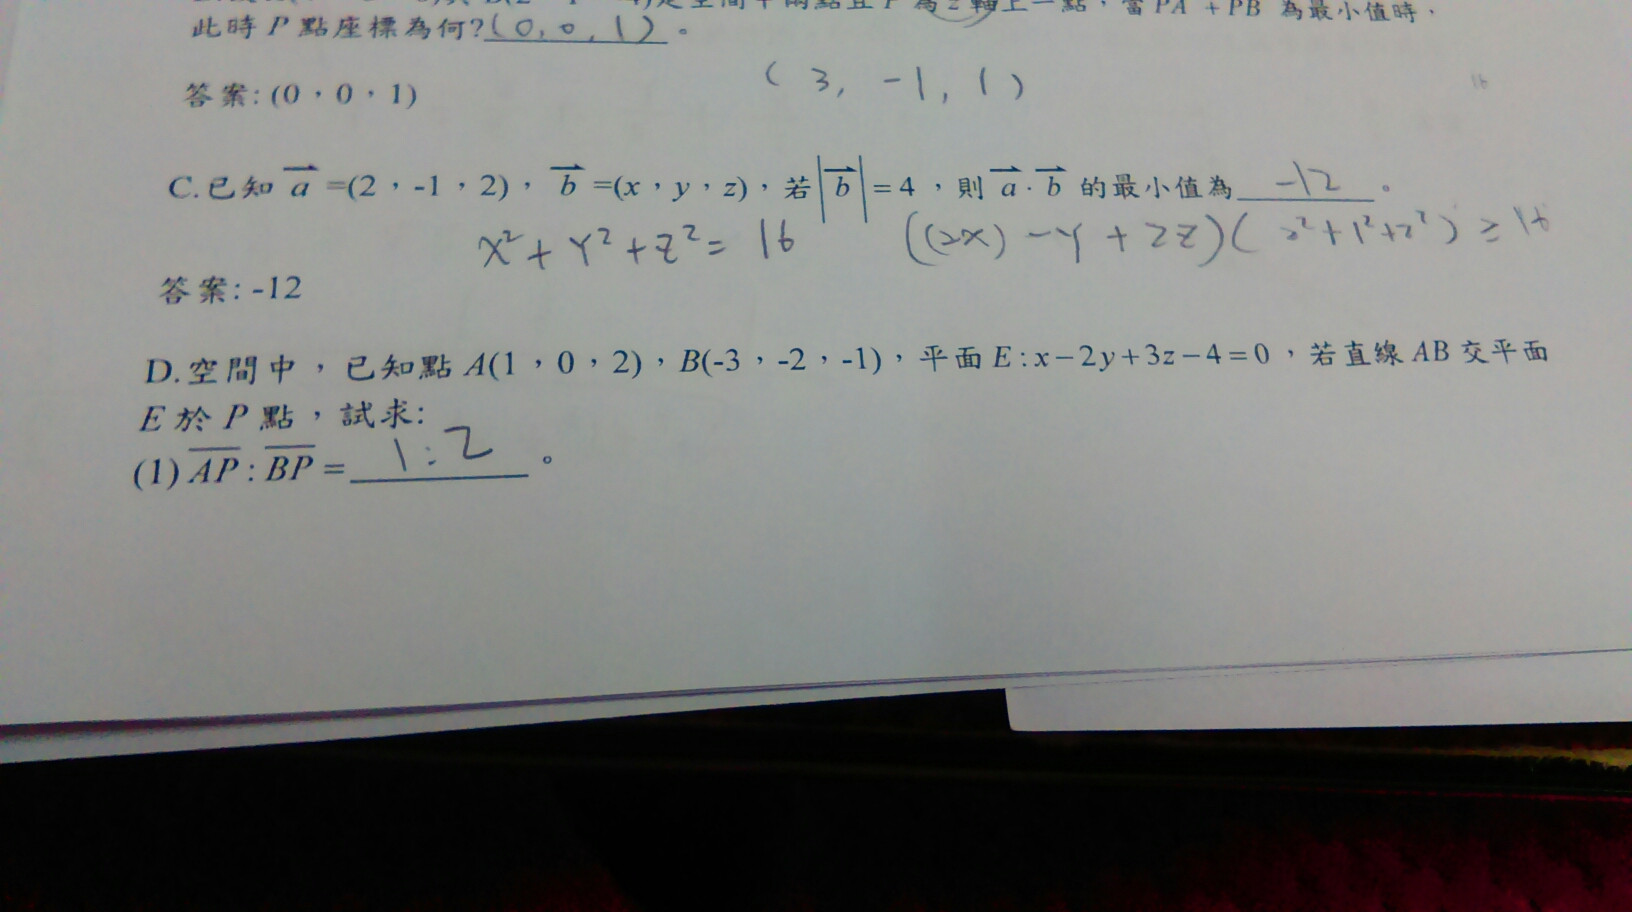 是空間中兩點且P為z軸上一點，當PA + PB 為最小值時，
此時P點座標為何?(0,0,1)。
答案:(0，0，1)
(3, -1, 1)
C.已知 a =(2，-1，2)， b =(x，y，z)，若 |b| = 4 ，則 a · b 的最小值為 -12 。
x²+y²+z²= 16 ((2x) -y + 2z)( 2²+1²+2² ) ≥ 16
答案: -12
D.空間中，已知點A(1，0，2)，B(-3，-2，-1)，平面E:x-2y+3z-4=0，若直線AB交平面
E於P點，試求:
(1) AP : BP = 1:2 。